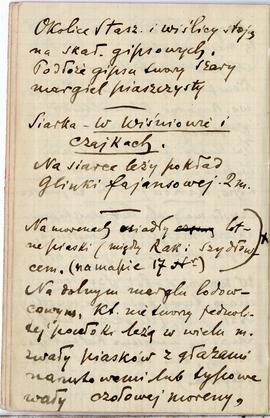 Okolice Stasz. i Wiślicy stoją
na skał. gipsowych.
Podłoże gipsu tworzy szary
margiel piaszczysty
Siarka - w Wiśniowie i
Czajkach.
Na siarce leży pokład
Glinki fajansowej. 2 m.
Na morenach osiadły lot-
ne piaski (między Rak. i Szydłow-
cem. (na mapie 17
Na dolnym marglu lodow-
cowym, kt. nie tworzy jednoli-
tej powłoki leżą w wielu m.
zwały piasków z głazami
narzutowemi lub typowe
wały czołowej moreny.